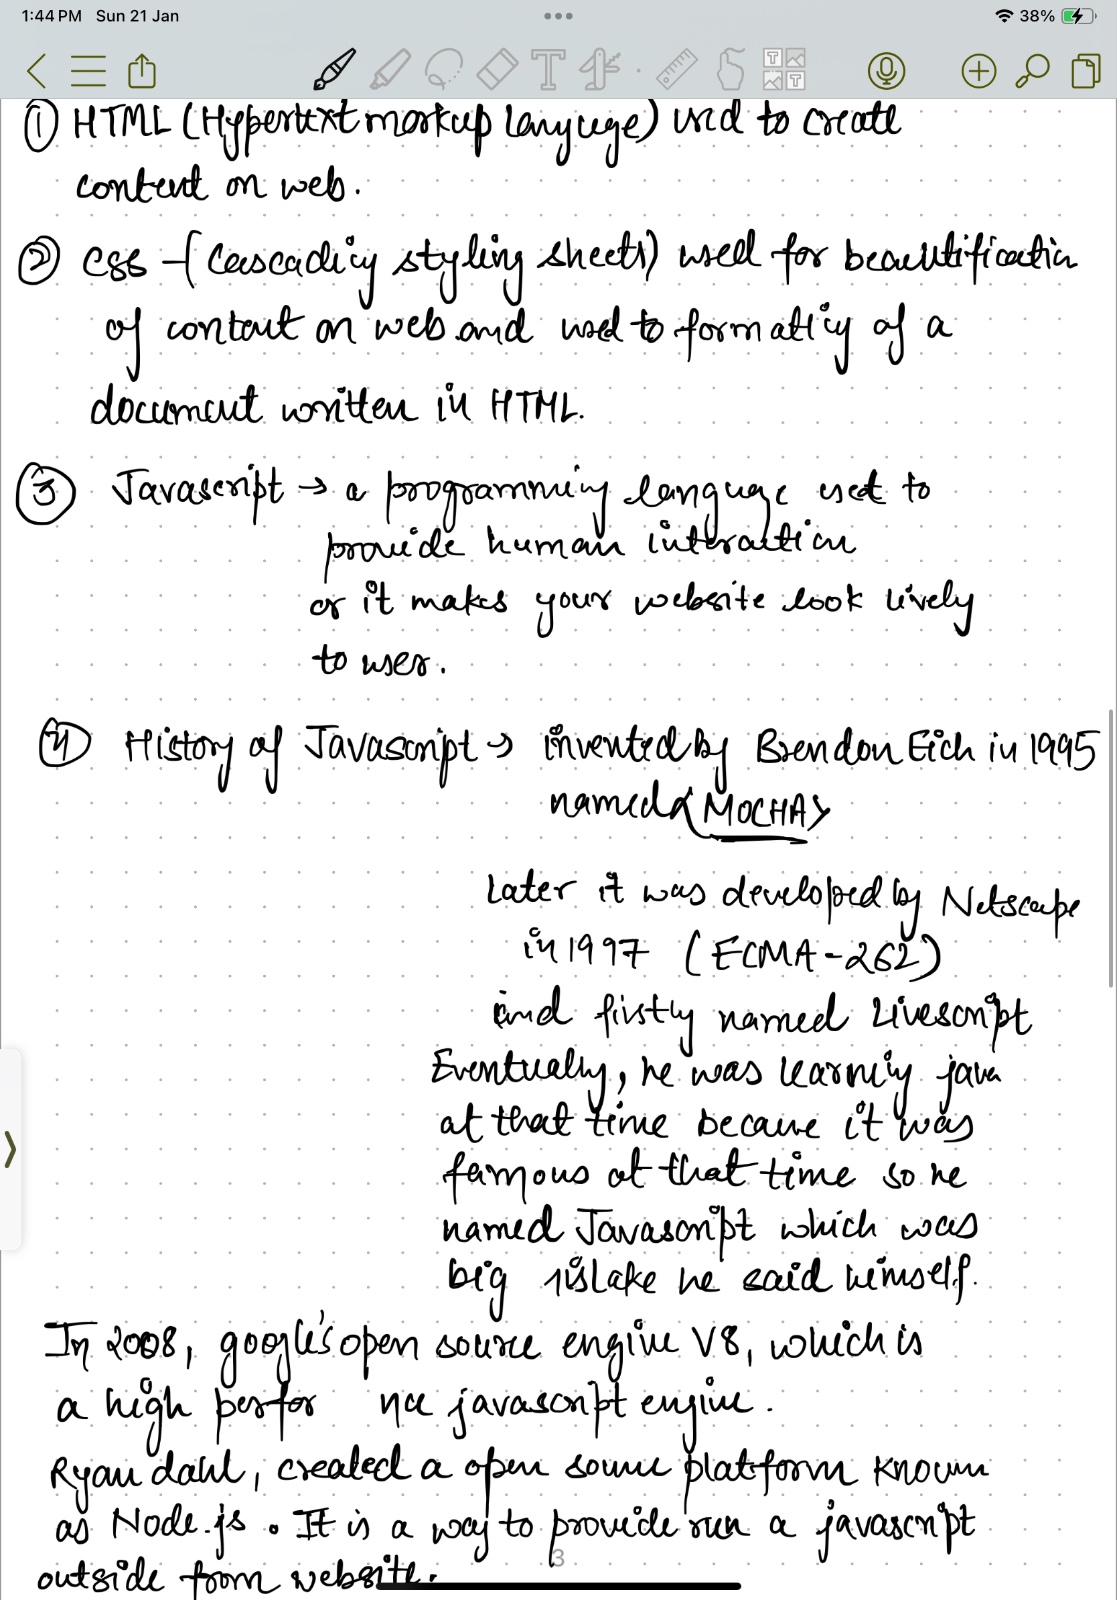 1:44 PM Sun 21 Jan
38%
① HTML (Hypertext markup language) used to create
content on web.
② CSS - (Cascading styling sheets) used for beautification
of content on web and used to formatting of a
document written in HTML.
③ Javascript → a programming language used to
provide human interaction
or it makes your website look lively
to user.
④ History of Javascript → invented by Brendon Eich in 1995
named MOCHA
Later it was developed by Netscape
in 1997 (ECMA-262)
and firstly named Livescript
Eventually, he was learning java
at that time because it was
famous at that time so he
named Javascript which was
big mistake he said himself.
In 2008, google's open source engine V8, which is
a high perfor nce javascript engine.
Ryan dahl, created a open source platform known
as Node.js. It is a way to provide run a javascript
3
outside from website.